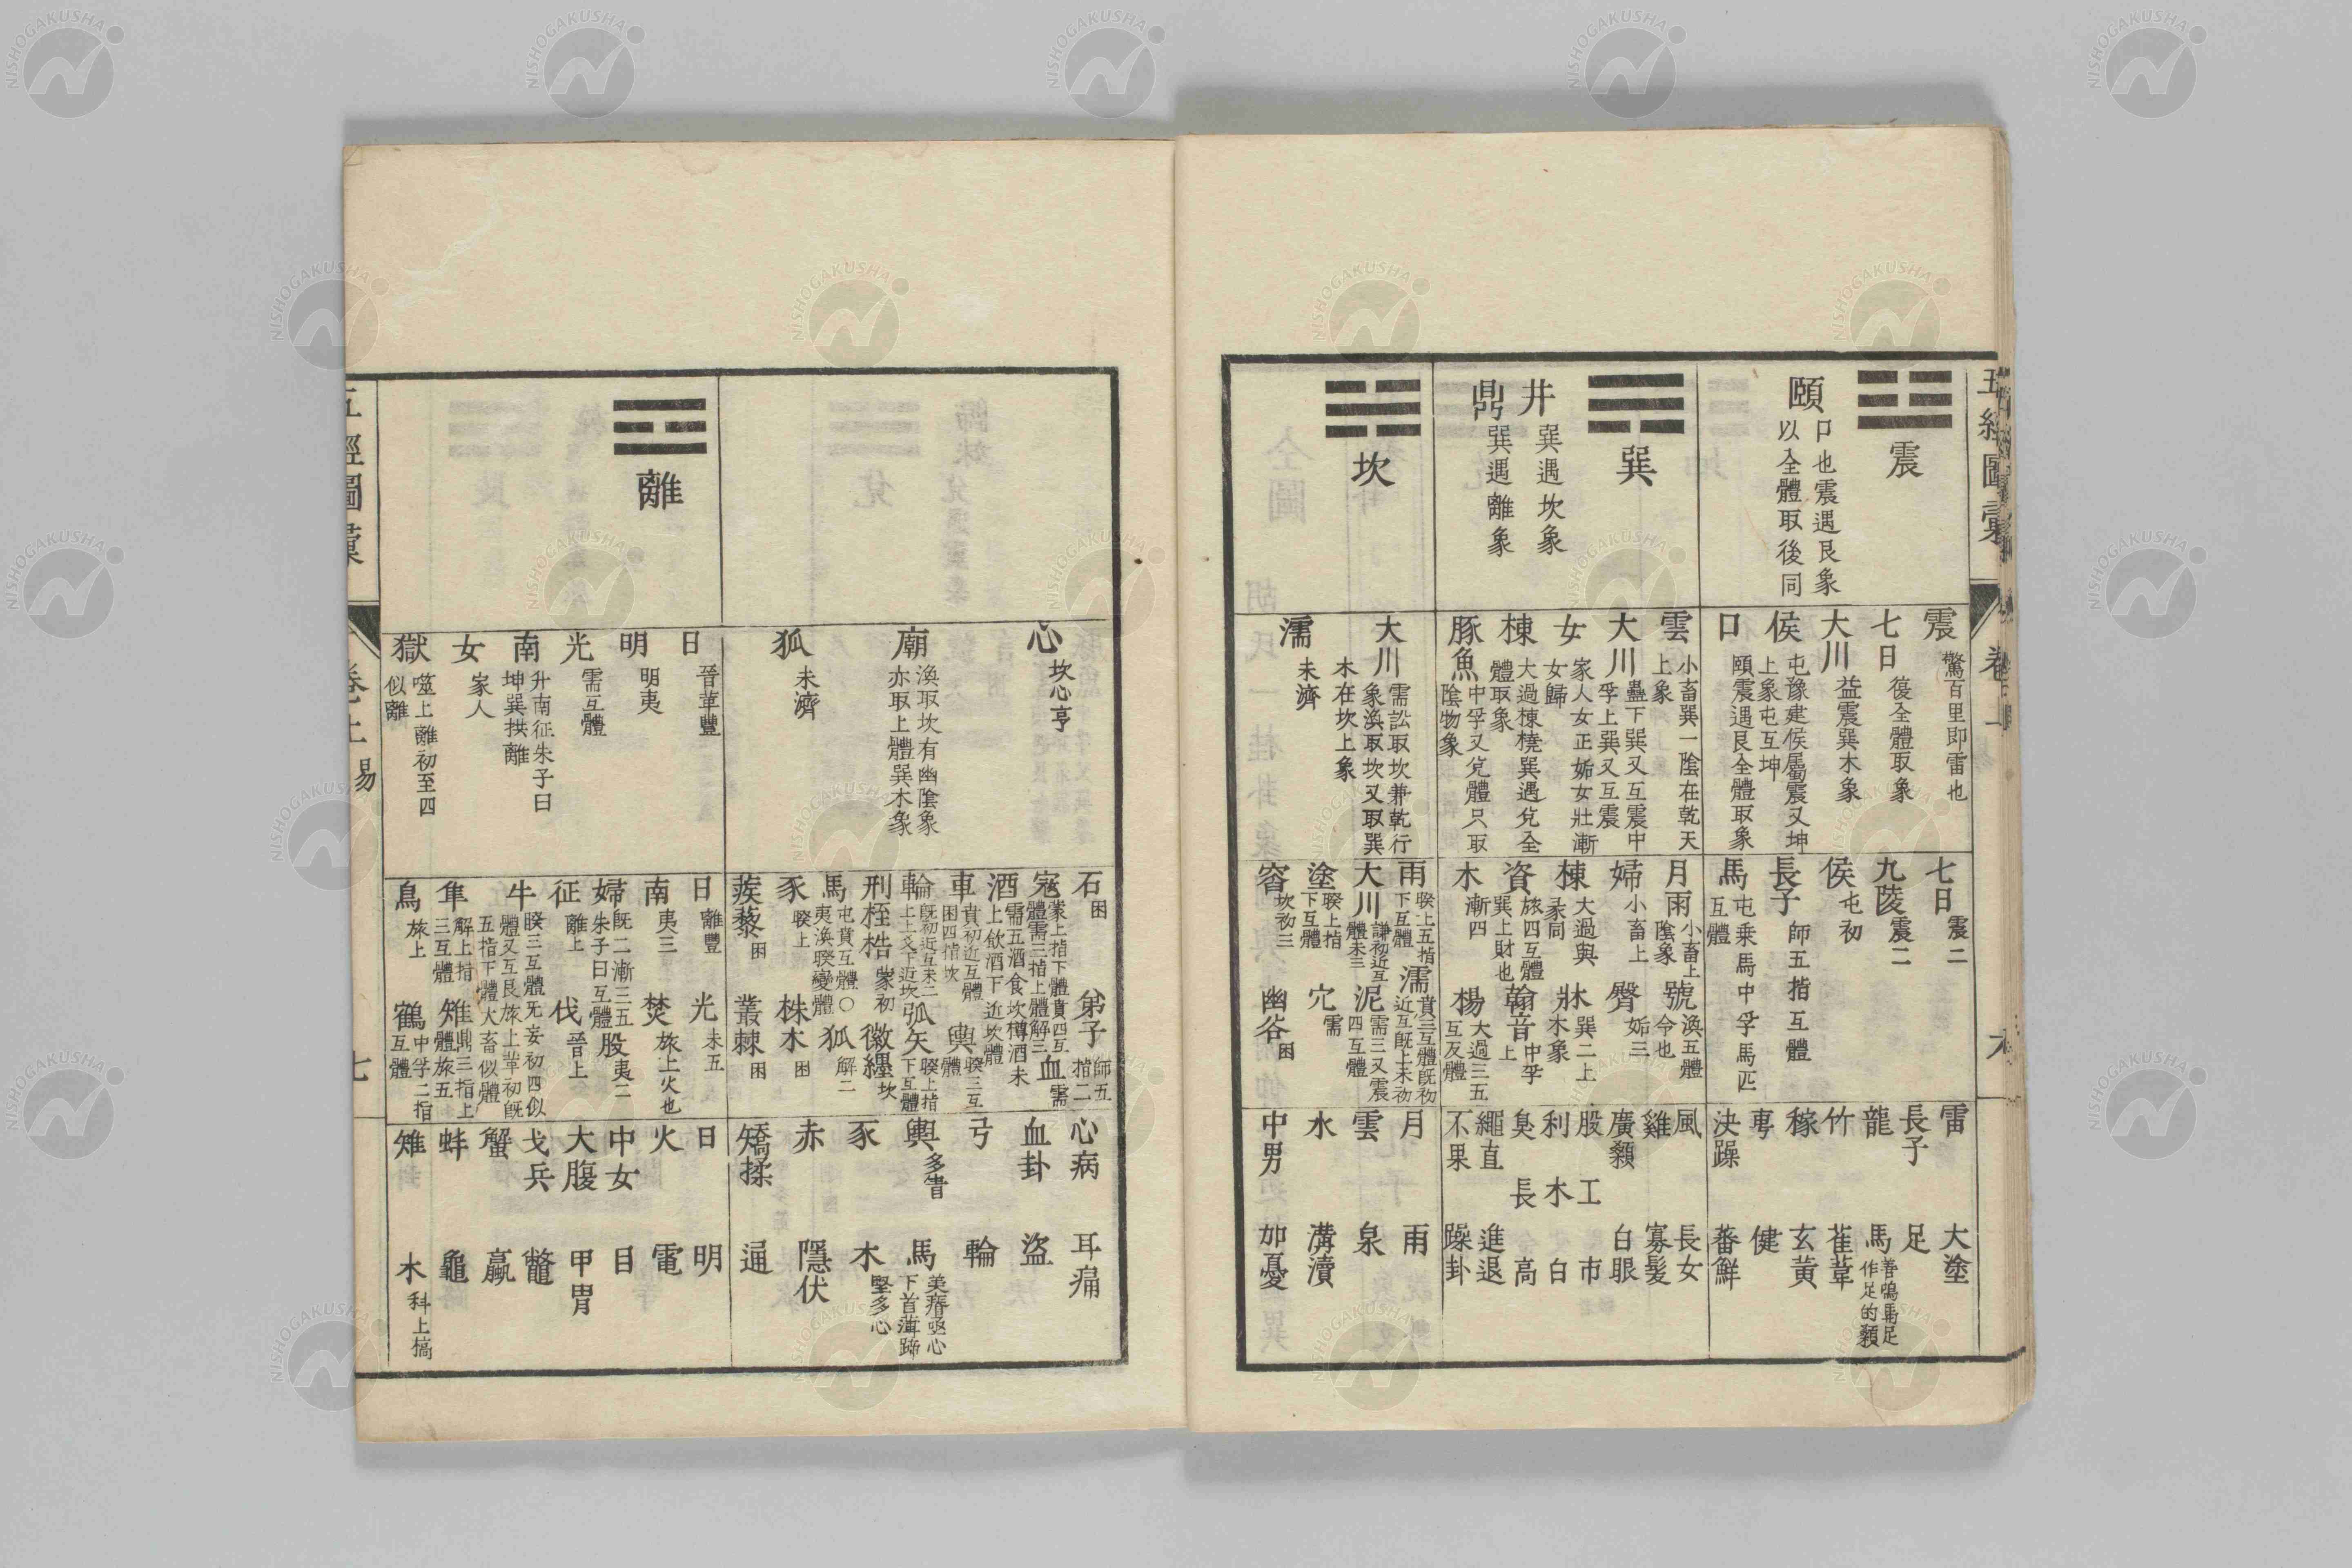 五經圖彙
卷一
震
頤
口也震遇艮象
以全體取後同
震
驚百里即雷也
七日
復全體取象
大川
益震巽木象
侯
屯豫建侯屬震又坤
上象屯互坤
口
頤震遇艮全體取象
七日
震二
九陵
震二
侯
屯初
長子
師五指互體
馬
屯乗馬中孚馬匹
互體
雷
大塗
長子
足
龍
馬
善鳴馬足
作足的顙
竹
萑葦
稼
玄黄
旉
健
決躁
蕃鮮
巽
井
巽遇坎象
鼎
巽遇離象
雲
小畜巽一陰在乾天
上象
大川
蠱下巽又互震中
孚上巽又互震
女
家人女正姤女壯漸
女歸
棟
大過棟橈巽遇兌全
體取象
豚魚
中孚又兌體只取
陰物象
月雨
小畜上
陰象
號
渙五體
令也
婦
小畜上
臀
姤三
棟
大過與
彖同
牀
巽二上
木象
資
旅四互體
巽上財也
翰音
中孚
上
木
漸四
楊
大過三五
互反體
風
長女
雞
寡髮
廣顙
白眼
股
工
市
利
木
白
臭
長
高
繩直
進退
不果
躁卦
坎
大川
需訟取坎兼乾行
象渙取坎又取巽
木在坎上象
濡
未濟
雨
睽上五指
下互體
濡
賁三互體旣初
近互旣上未初
大川
謙初近互
體未三
泥
需三又震
四互體
塗
睽上指
下互體
穴
需
窞
坎初三
幽谷
困
月
雨
雲
泉
水
溝瀆
中男
加憂
心
坎心亨
廟
渙取坎有幽陰象
亦取上體巽木象
狐
未濟
石
困
弟子
師五
指二
寇
蒙上指下體賁四互
體需三指上體解三
血
需
酒
需五酒食坎樽酒未
上飲酒下近坎體
車
賁初近互體
困四指坎
輿
睽三互
體
輪
旣初近互未二
上上爻下近坎
弧矢
睽上指
下互體
刑桎梏
蒙初
徽纆
坎
馬
屯賁互體○
夷渙睽變體
狐
解二
豕
睽上
株木
困
蒺藜
困
叢棘
困
心病
耳痛
血卦
盜
弓
輪
輿
多眚
馬
美瘠亟心
下首薄蹄
豕
木
堅多心
赤
隱伏
矯揉
通
離
日
晉革豐
明
明夷
光
需互體
南
升南征朱子曰
坤巽拱離
女
家人
獄
噬上離初至四
似離
日
離豐
光
未五
南
夷三
焚
旅上火也
婦
旣二漸三五
朱子曰互體
股
夷二
征
離上
伐
晉上
牛
睽三互體无妄初四似
體又互艮旅上革初旣
五指下體大畜似體
隼
解上指
三互體
雉
鼎三指上
體旅五
鳥
旅上
鶴
中孚二指
互體
日
明
火
電
中女
日
大腹
甲冑
戈兵
鼈
蟹
蠃
蚌
龜
雉
木
科上槁
五經圖彙
卷上
易
七